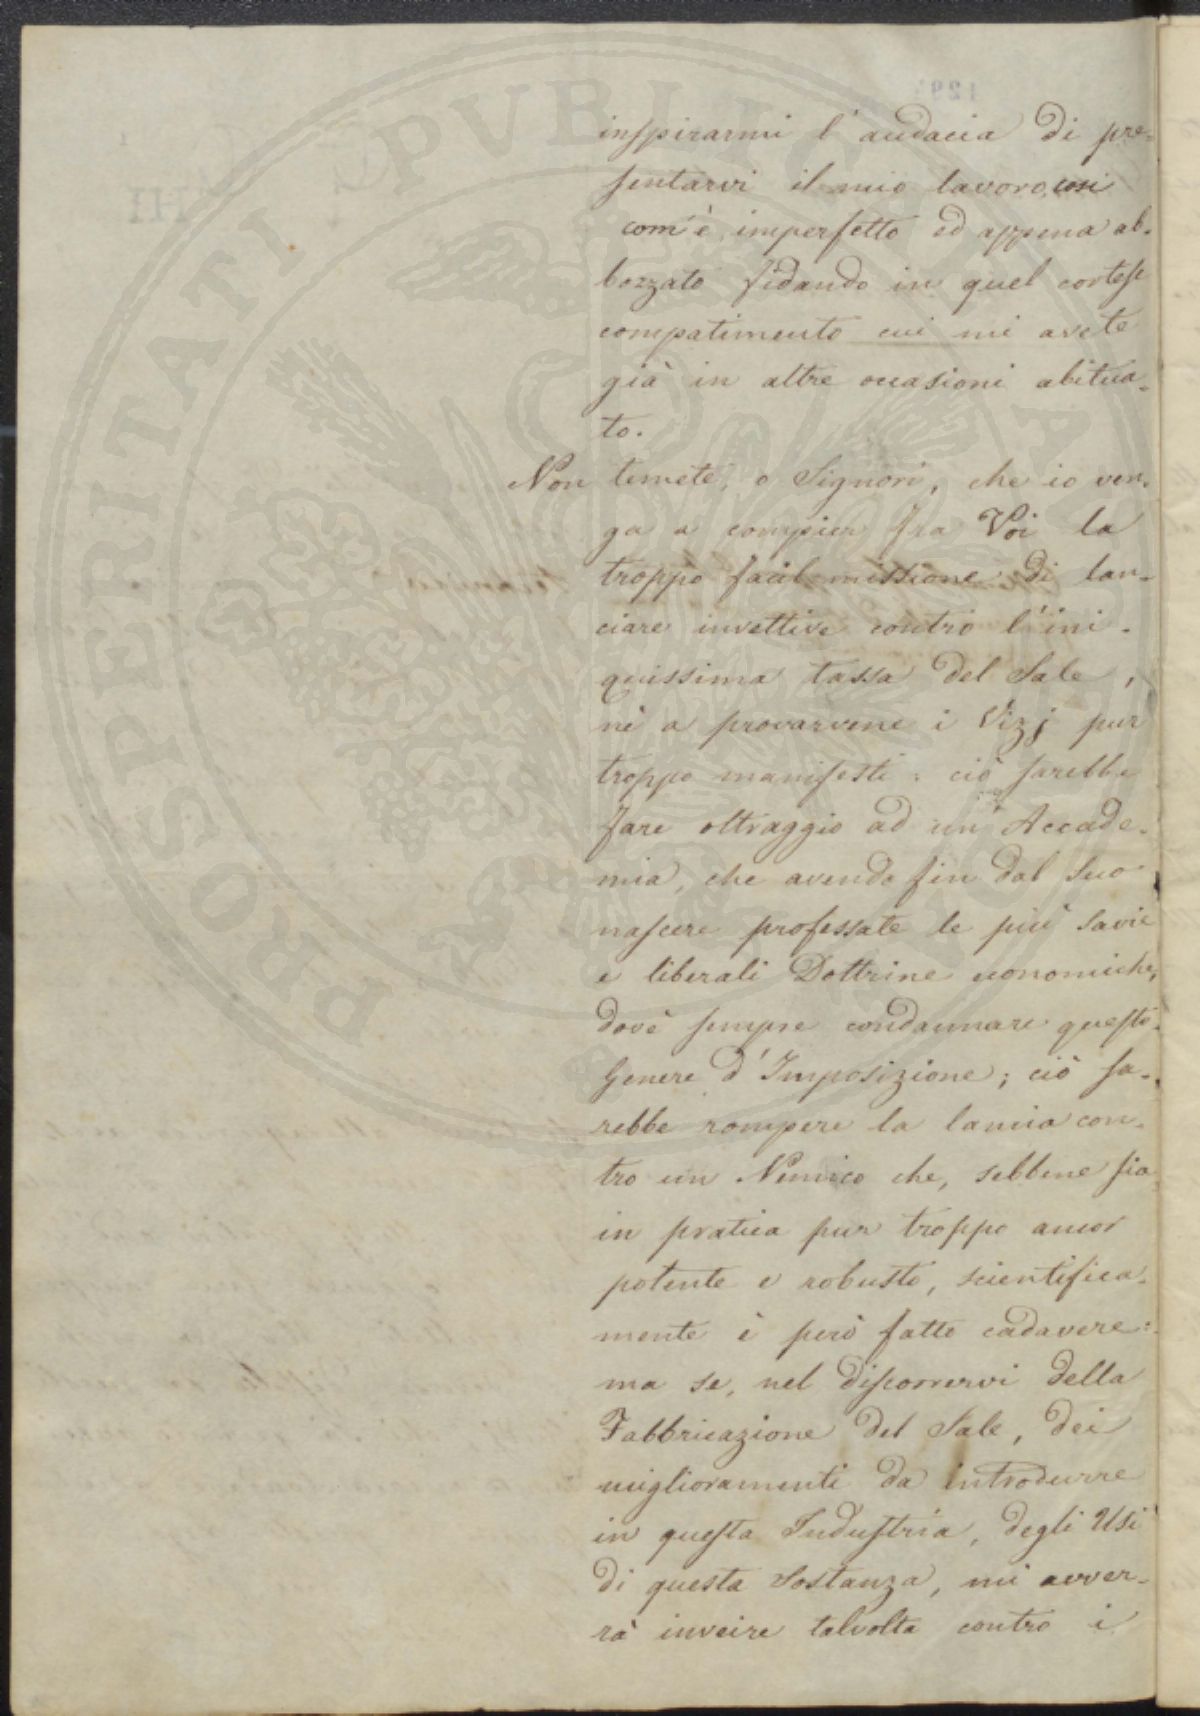 PROSPERITATI PVBLICAE
inspirarmi l'audacia di pre-
sentarvi il mio lavoro, così
com'è, imperfetto ed appena ab-
bozzato fidando in quel cortese
compatimento cui mi avete
già in altre occasioni abitua-
to.
Non temete, o Signori, che io ven-
ga a compier fra Voi la
troppo facil missione di lan-
ciare invettive contro l'ini-
quissima tassa del Sale,
nè a provarvene i Vizj pur
troppo manifesti: ciò sarebbe
fare oltraggio ad un'Accade-
mia, che avendo fin dal suo
nascere professate le più savie
e liberali Dottrine economiche,
dovè sempre condannare questo
Genere d'Imposizione; ciò sa-
rebbe rompere la lancia con-
tro un Nemico che, sebbene sia
in pratica pur troppo ancor
potente e robusto, scientifica-
mente è però fatto cadavere:
ma se, nel discorrervi della
Fabbricazione del Sale, dei
miglioramenti da introdurre
in questa Industria, degli Usi
di questa Sostanza, mi avver-
rà inveire talvolta contro i